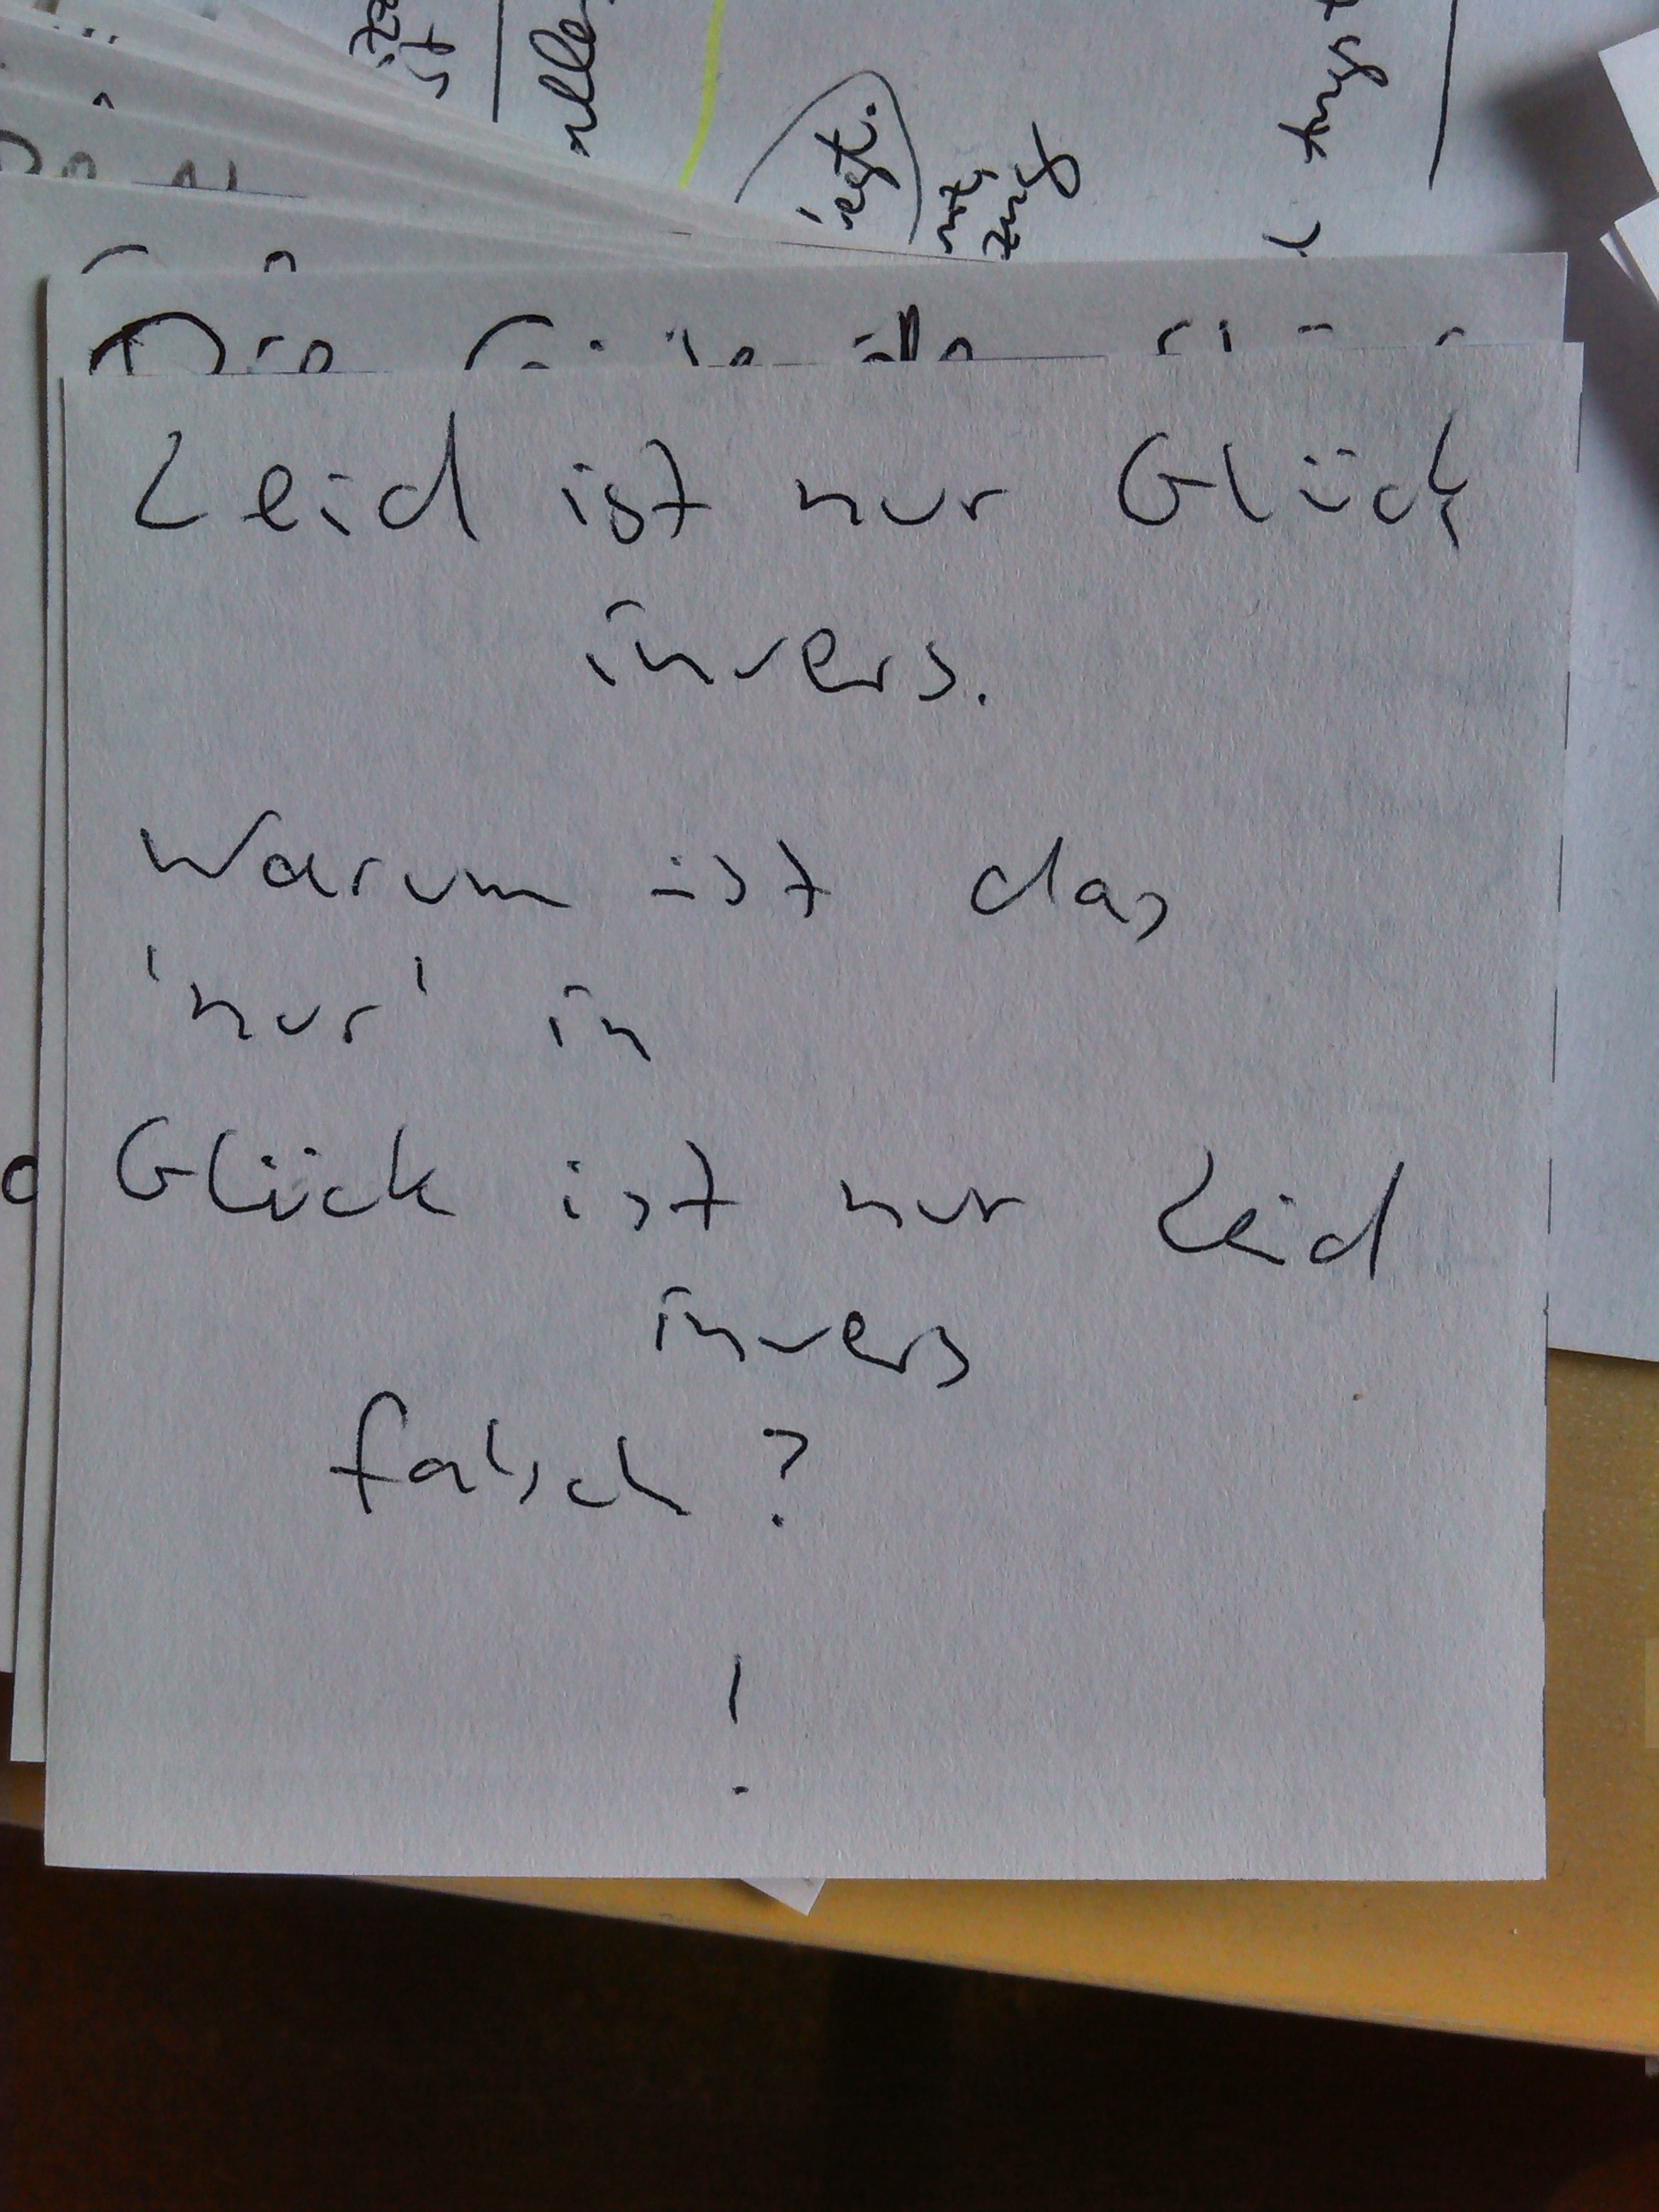 Leid ist nur Glück
invers.
Warum ist das
'nur' in
Glück ist nur Leid
invers
falsch?
!